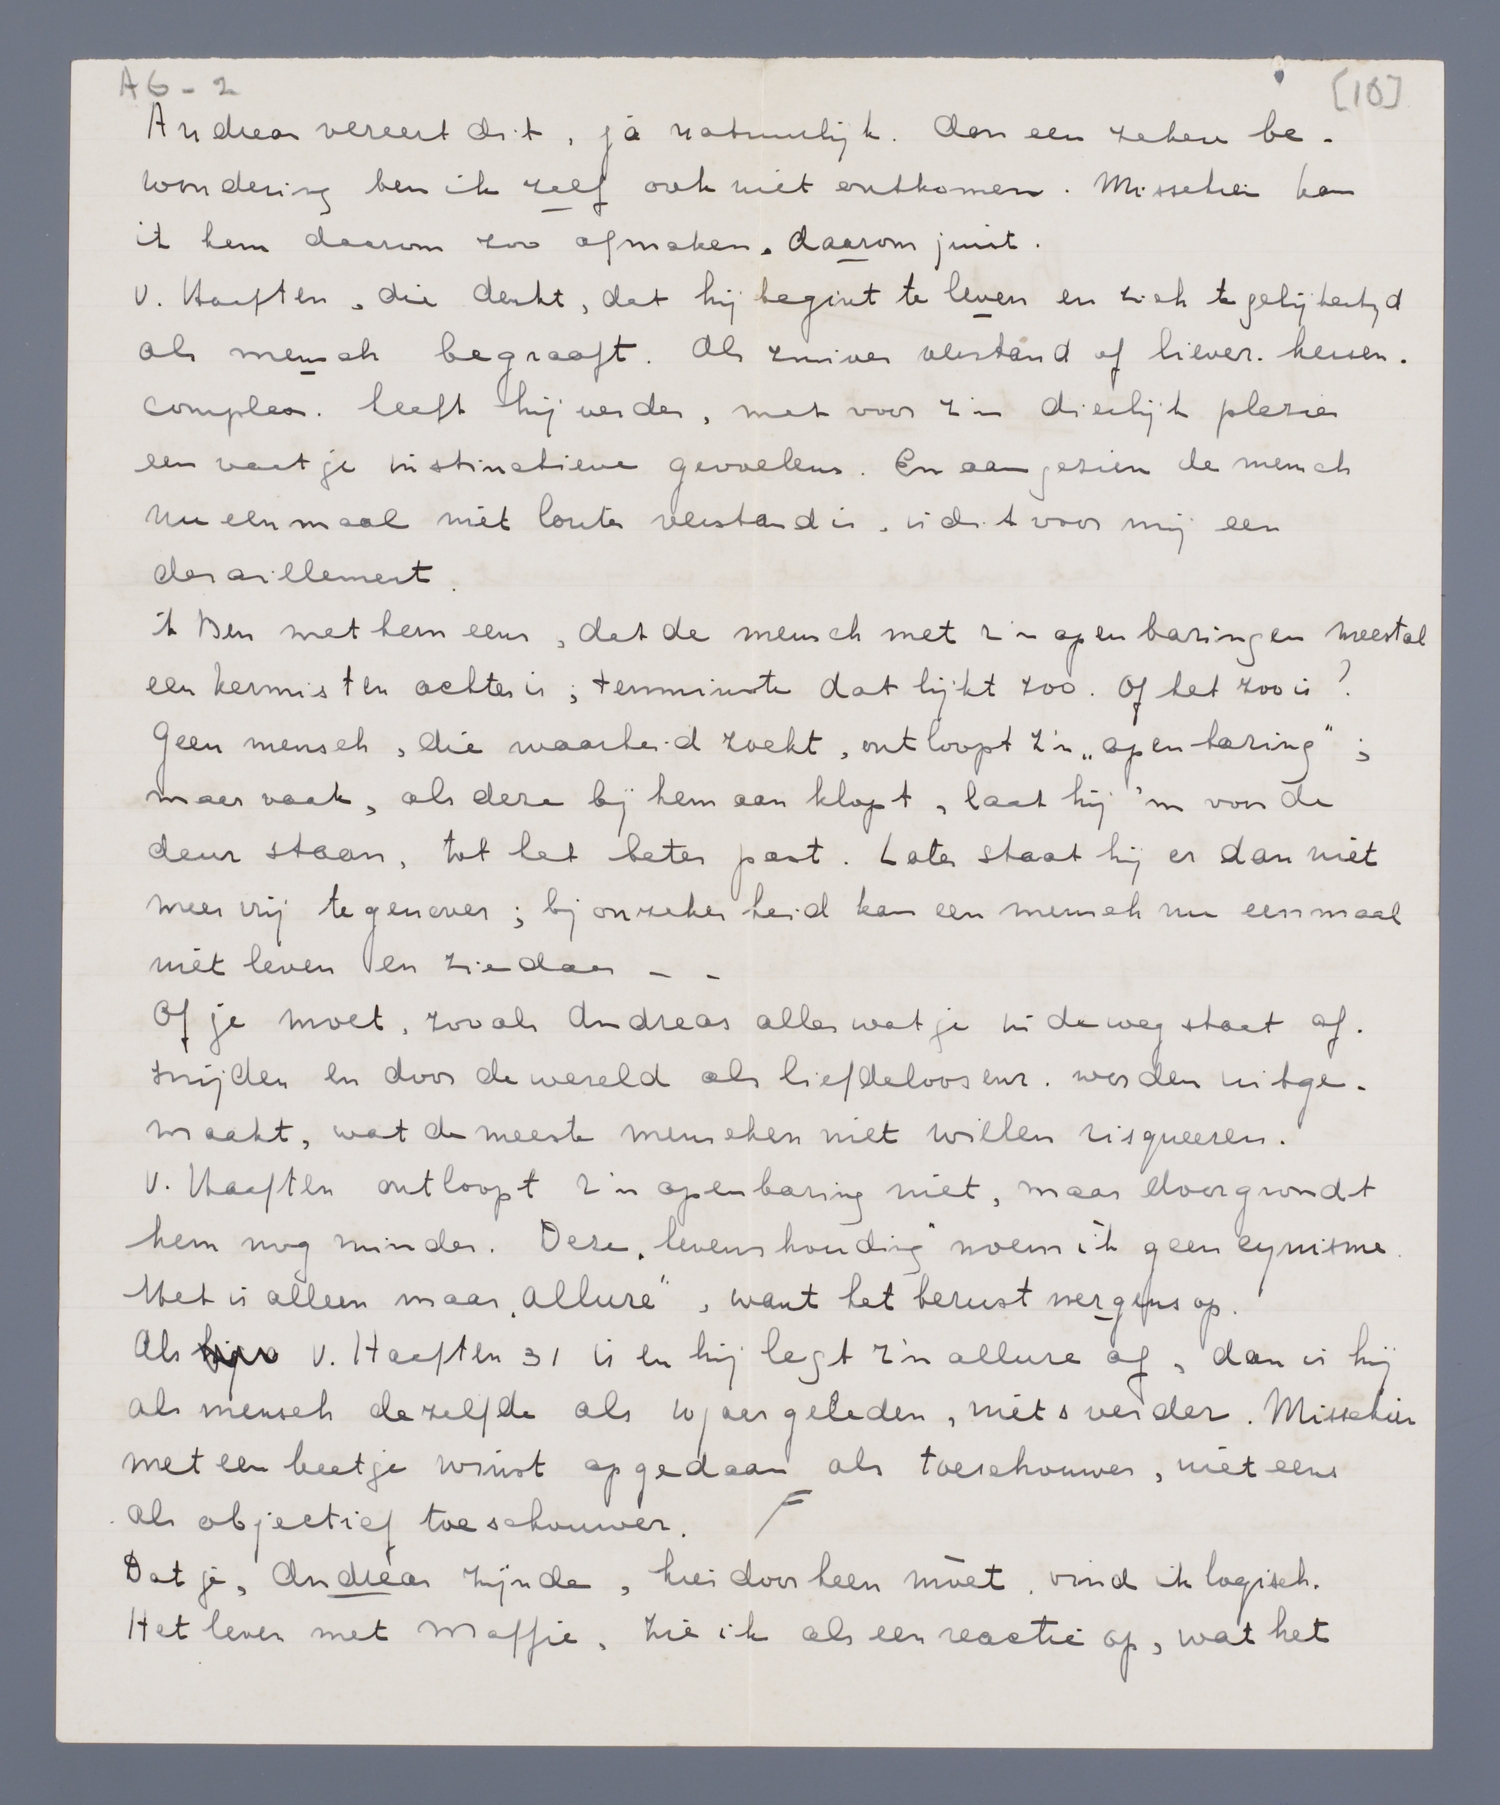 A6 - 2
[10]
Andreas vereert dit, ja natuurlijk. Aan een zekere be-
wondering ben ik zelf ook niet ontkomen. Misschien kan
ik hem daarom zoo afmaken, daarom juist.
v. Haaften, die denkt, dat hij begint te leven en zich tegelijkertijd
als mensch begraaft. Als zuiver verstand of liever. hersen-
complex. leeft hij verder, met voor z'n dierlijk plezier
een vaatje instinctieve gevoelens. En aangezien de mensch
nu eenmaal niet louter verstand is, is dit voor mij een
deraillement.
ik Ben met hem eens, dat de mensch met z'n openbaringen meestal
een kermis ten achter is; tenminste dat lijkt zoo. Of het zoo is?
Geen mensch, die waarheid zoekt, ontloopt z'n „openbaring";
maar vaak, als deze bij hem aanklopt, laat hij 'm voor de
deur staan, tot het beter past. Later staat hij er dan niet
meer vrij tegenover; bij onzekerheid kan een mensch nu eenmaal
niet leven en ziedaar _ _
Of je moet, zooals Andreas alles wat je in de weg staat af-
snijden en door de wereld als liefdeloos enz. worden uitge-
maakt, wat de meeste menschen niet willen risqueeren.
v. Haaften ontloopt z'n openbaring niet, maar doorgrondt
hem nog minder. Deze „levenshouding" noem ik geen cynisme.
Het is alleen maar „allure", want het berust nergens op.
Als v. Haaften 31 is en hij legt z'n allure af, dan is hij
als mensch dezelfde als 10 jaar geleden, niets verder. Misschien
met een beetje winst opgedaan als toeschouwer, niet eens
als objectief toeschouwer. F
Dat je, Andreas zijnde, hier doorheen moet, vind ik logisch.
Het leven met Maffie, zie ik als een reactie op, wat het